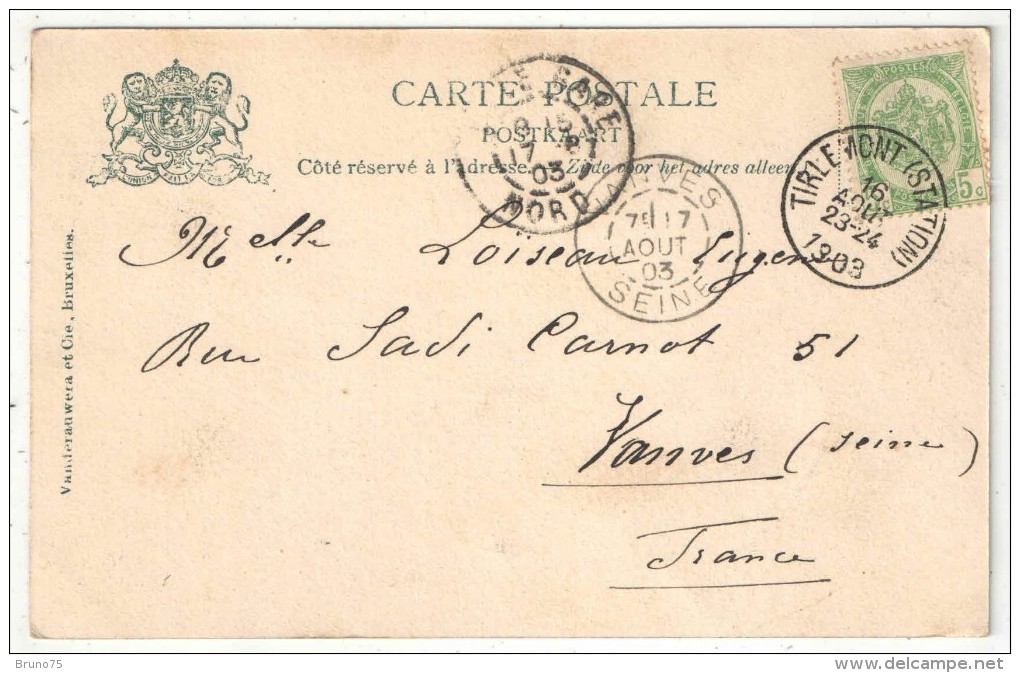 CARTE POSTALE
POSTKAART
Côté réservé à l'adresse. Zijde voor het adres alleen.
POSTES
5c
TIRLEMONT (STATION)
16
AOUT
23-24
1903
GARE
17
03
NORD
VANVES
7E 17
AOUT
03
SEINE
Melle Loiseau Eugénie
Rue Sadi Carnot 51
Vanves (Seine)
France
Vanderauwera et Cie, Bruxelles.
Bruno75
http://www.delcampe.net